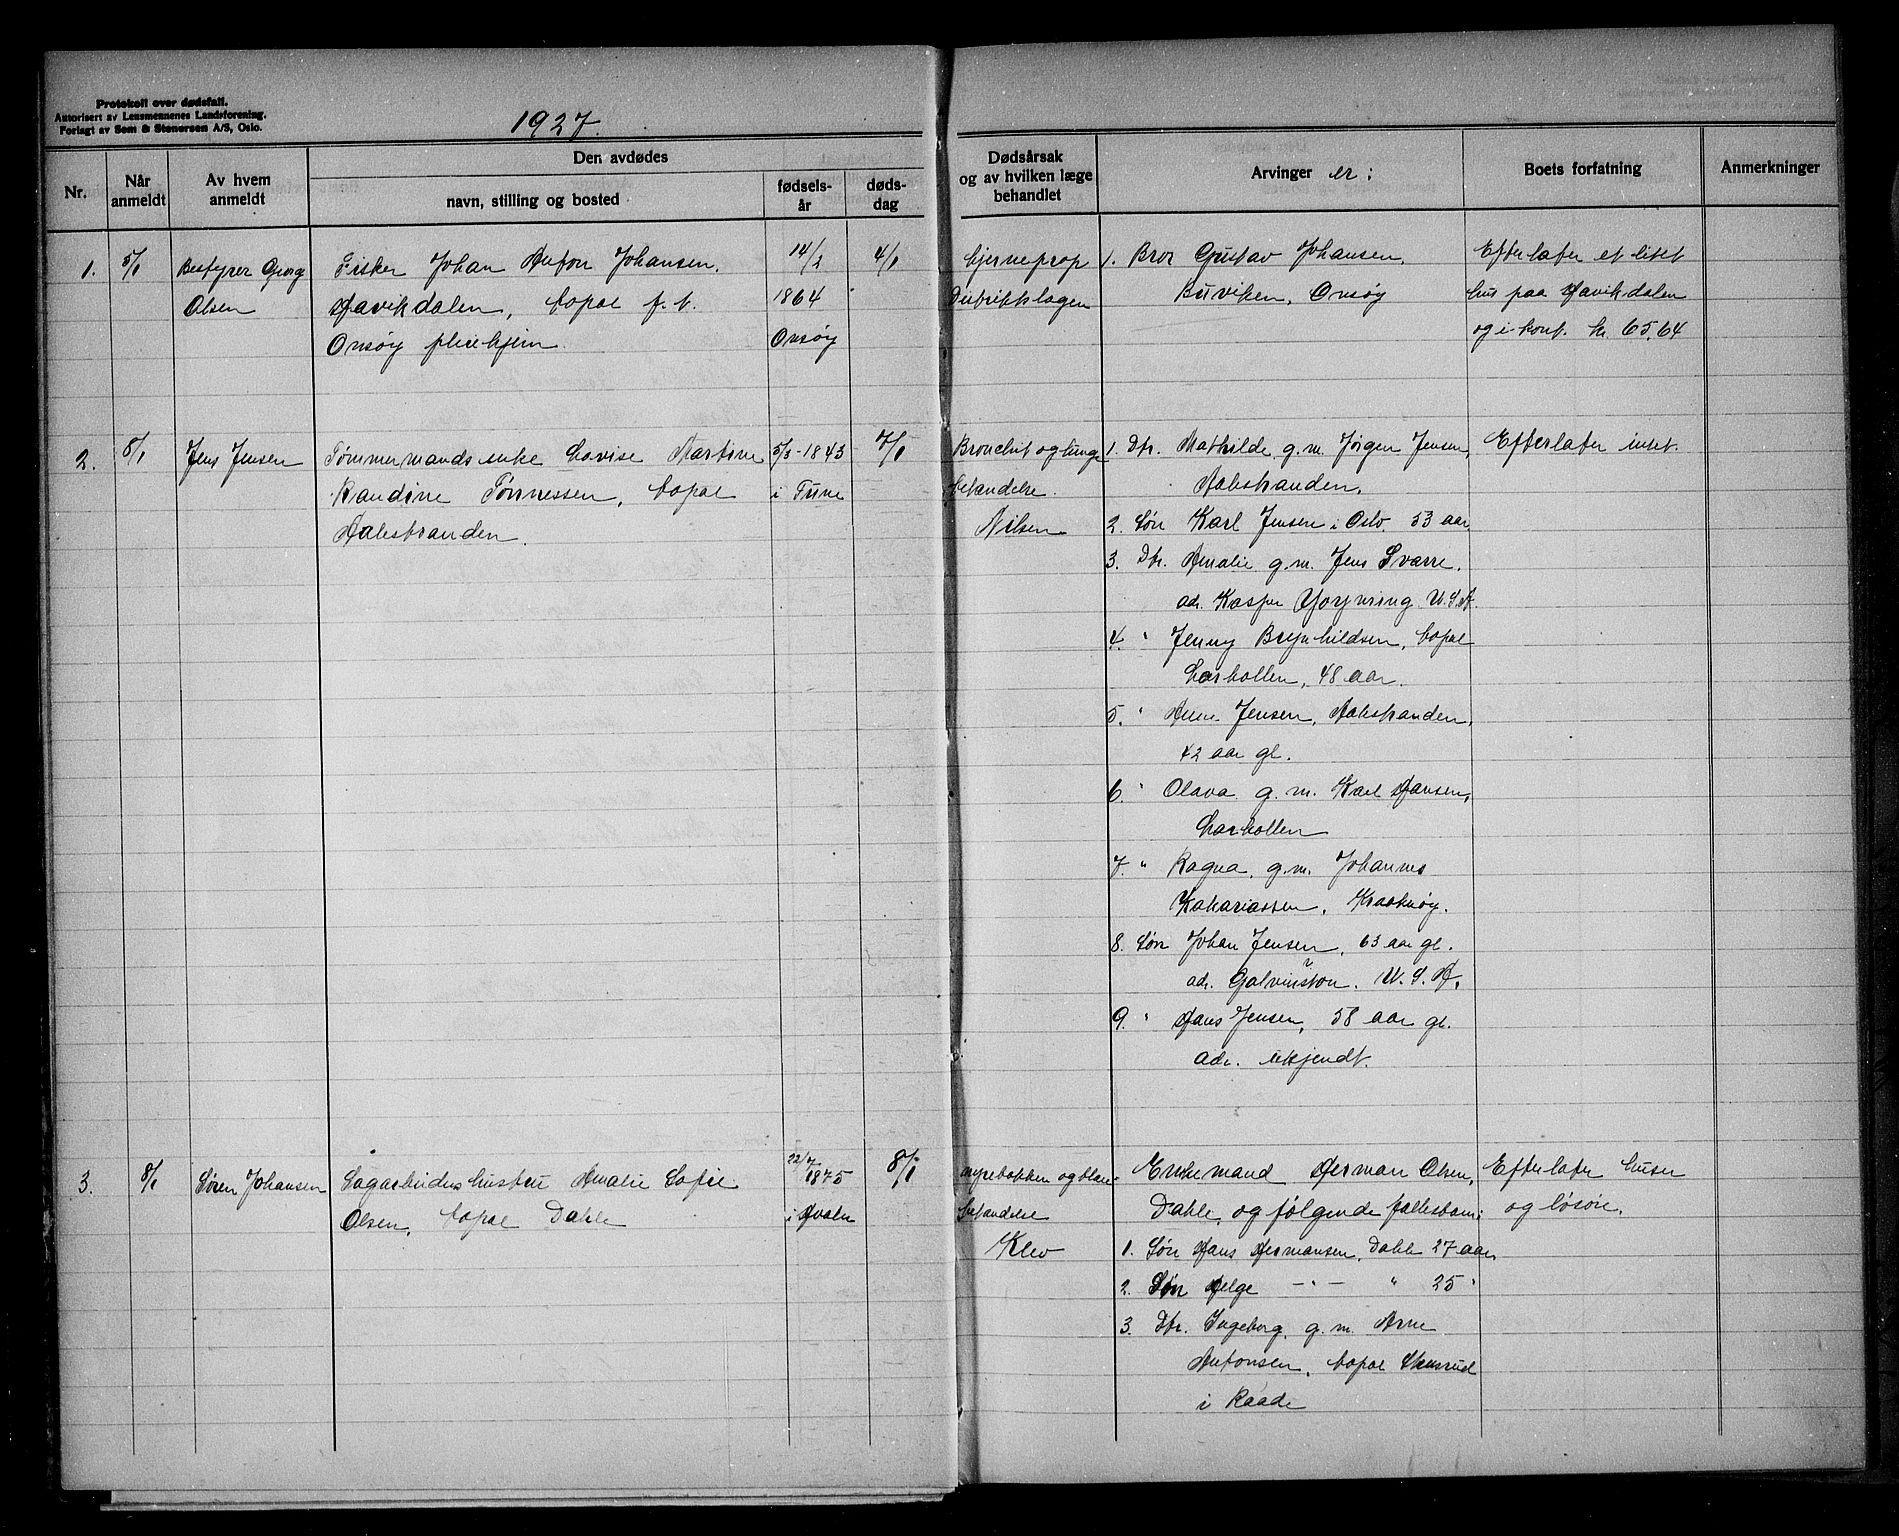 Protokoll over dødsfall.
Autorisert av Lensmennenes Landsforening.
Forlagt av Sem & Stenersen A/S, Oslo.
1927.
Nr.
Når anmeldt
Av hvem anmeldt
Den avdødes
navn, stilling og bosted
fødsels-år
døds-dag
Dødsårsak
og av hvilken læge
behandlet
Arvinger er:
Boets forfatning
Anmerkninger
1.
5/1
Bestyrer Georg
Olsen
Fisker Johan Anton Johansen.
Havikdalen, bopæl f. t.
Onsøy pleiehjem.
14/2
1864
Onsøy
4/1
hjerneprop
Distriktslægen
1. Bror Gustav Johansen.
Buviken, Onsøy
Efterlater et litet
hus paa Havikdalen
og i kont. kr. 65,64
2.
8/1
Jens Jensen
Tømmermands enke Lovise Martine
Randine Tønnessen, bopæl
Aalestranden.
5/3-1843
i Tune
7/1
Bronchit og lunge
betændelse.
Nilsen
1. Dtr. Mathilde g.m. Jørgen Jensen,
Aalestranden.
2. Søn Karl Jensen i Oslo. 53 aar
3. Dtr. Amalie g.m. Jens Svarre.
adr. Kasper U.S.A.
4. " Jenny Brynhildsen, bopæl
Lervollen, 48 aar.
5. " Anne Jensen, Aalestranden,
42 aar gl.
6. " Olava g.m. Karl Hansen,
Lervollen
7. " Ragna, g.m. Johannes
Zakariassen, Kraakerøy.
8. Søn Johan Jensen, 63 aar gl.
adr. Galvinston. U.S.A.
9. " Hans Jensen, 58 aar gl.
adr. ukjendt.
Efterlater intet.
3.
8/1
Søren Johansen
Sagarbeiders hustru Amalie Sofie
Olsen, bopæl Dahle
22/7
1875
i Hvaler
8/1
nyrebækken og blære-
betændelse
Klev
Enkemand Herman Olsen,
Dahle, og følgende fællesbarn:
1. Søn Hans Hermansen, Dahle 27 aar
2. Søn Helge — " — " 25 "
3. Dtr. Ingeborg, g.m. Arne
Antonsen, bopæl
i Raade
Efterlater huser
og løsøre.